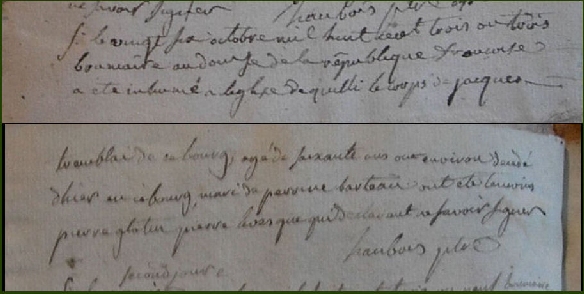 ne savoir signer haubois ptre
Le vingt six octobre mil huit cent trois ou trois
brumaire an douse de la république francaise
a été inhumé a leglise de quilli le corps de jacques
tremblai de ce bourg, agé de soixante ans ou environ décédé
dhier en ce bourg, mari de perrine berteau ont été temoins
pierre glotin pierre qui declarent ne savoir signer
haubois ptre
second jour